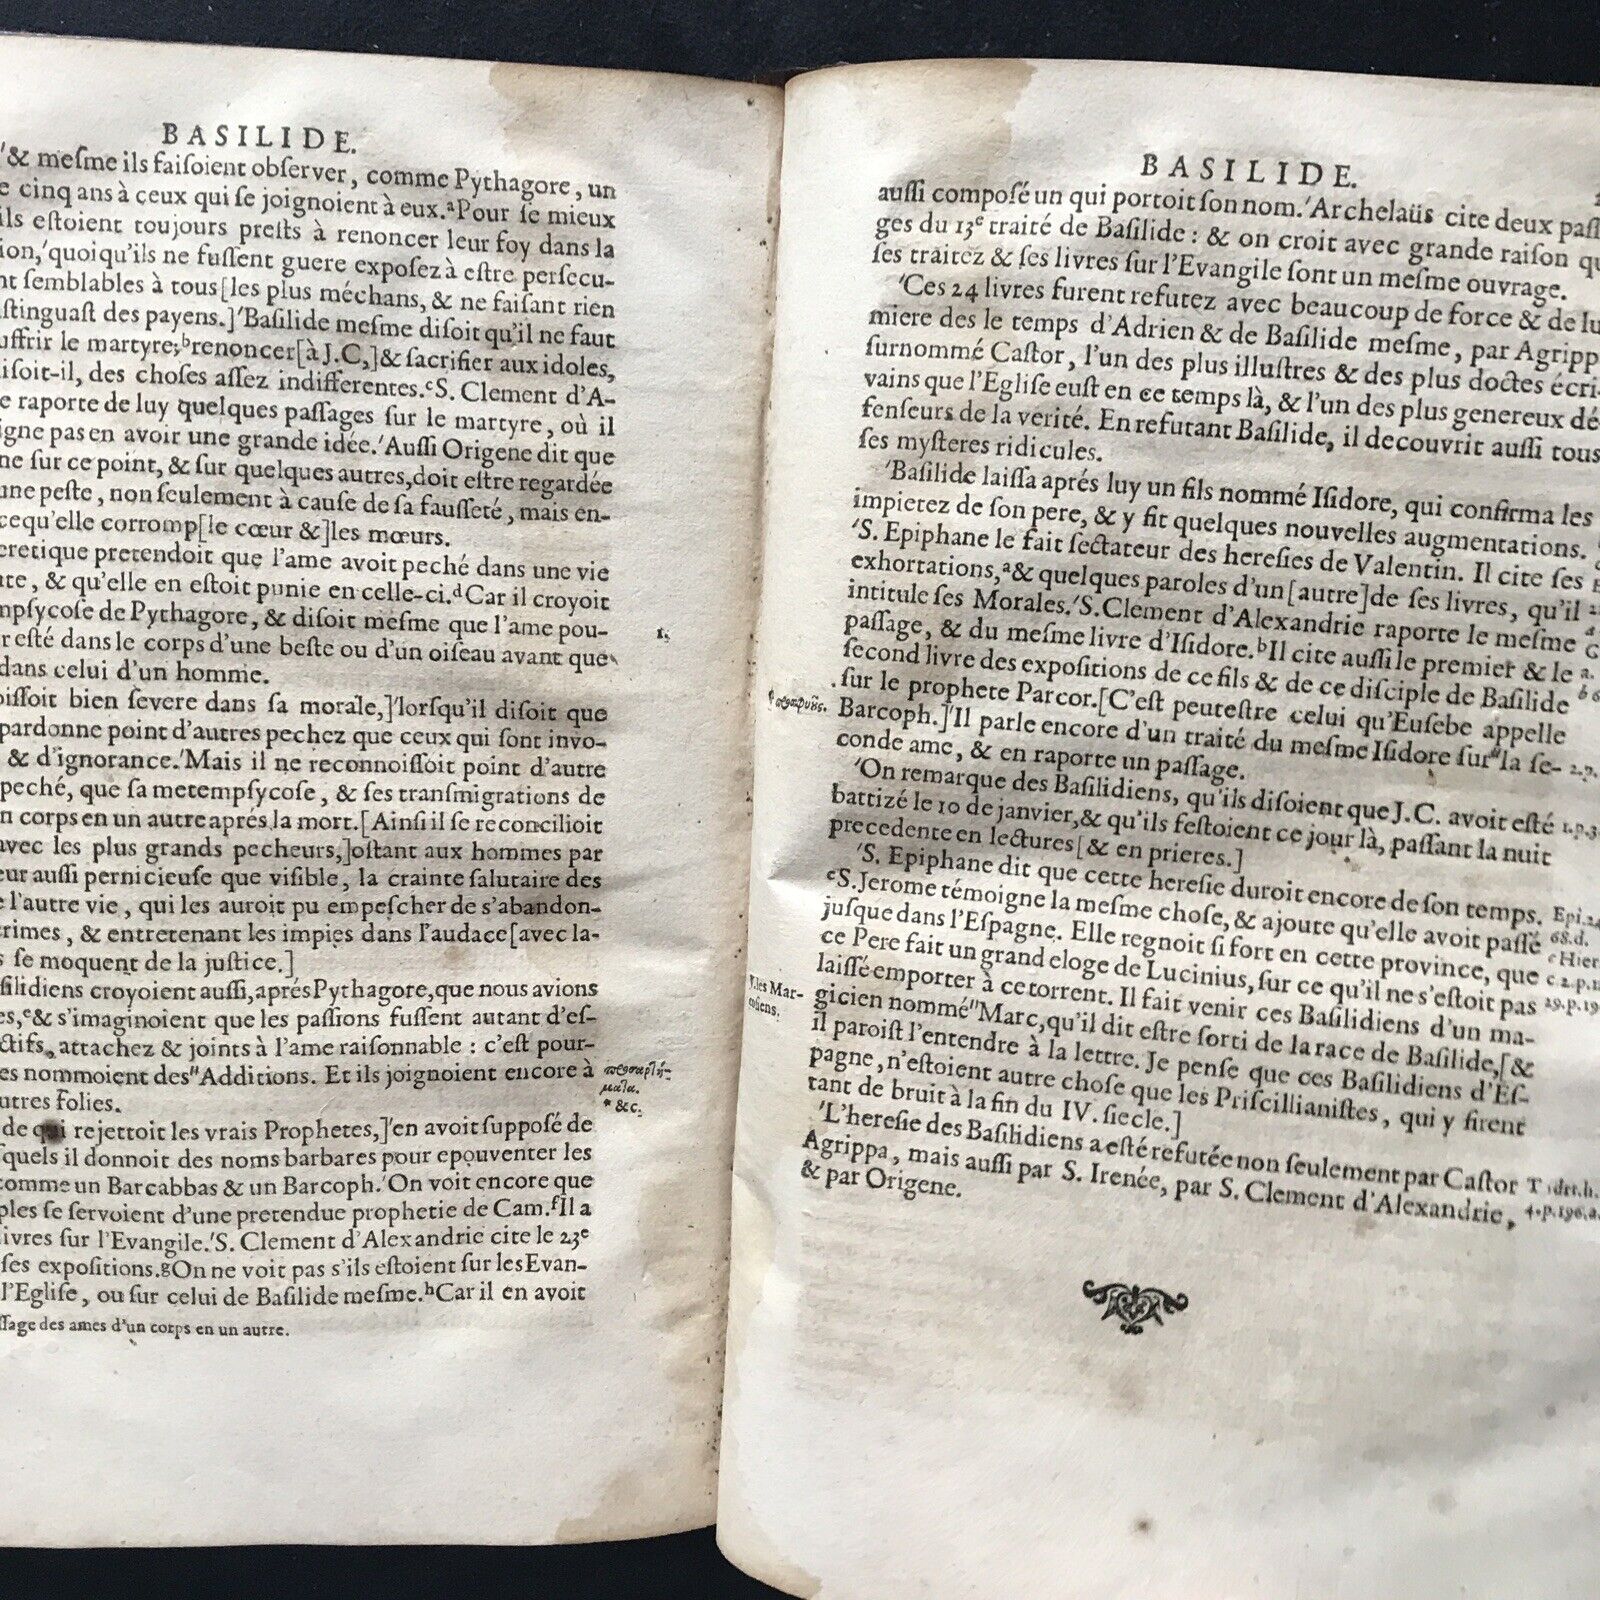 BASILIDE.
'& meſme ils faiſoient obſerver, comme Pythagore, un
e cinq ans à ceux qui ſe joignoient à eux.ᵃPour ſe mieux
ils eſtoient toujours preſts à renoncer leur foy dans la
ion,'quoiqu'ils ne fuſſent guere expoſez à eſtre perſecu-
nt ſemblables à tous[les plus méchans, & ne faiſant rien
ſtinguaſt des payens.]'Baſilide meſme diſoit qu'il ne faut
uffrir le martyre;ᵇrenoncer[à J.C,]& ſacrifier aux idoles,
iſoit-il, des choſes aſſez indifferentes.ᶜS. Clement d'A-
e raporte de luy quelques paſſages ſur le martyre, où il
igne pas en avoir une grande idée.'Auſſi Origene dit que
ne ſur ce point, & ſur quelques autres, doit eſtre regardée
une peſte, non ſeulement à cauſe de ſa fauſſeté, mais en-
cequ'elle corromp[le cœur &]les mœurs.
eretique pretendoit que l'ame avoit peché dans une vie
nte, & qu'elle en eſtoit punie en celle-ci.ᵈCar il croyoit
mpſycoſe de Pythagore, & diſoit meſme que l'ame pou-
r eſté dans le corps d'une beſte ou d'un oiſeau avant que
dans celui d'un homme.
oiſſoit bien ſevere dans ſa morale,]'lorſqu'il diſoit que
pardonne point d'autres pechez que ceux qui ſont invo-
& d'ignorance.'Mais il ne reconnoiſſoit point d'autre
peché, que ſa metempſycoſe, & ſes tranſmigrations de
n corps en un autre aprés la mort.[Ainſi il ſe reconcilioit
avec les plus grands pecheurs,]oſtant aux hommes par
eur auſſi pernicieuſe que viſible, la crainte ſalutaire des
e l'autre vie, qui les auroit pu empeſcher de s'abandon-
rimes, & entretenant les impies dans l'audace[avec la-
s ſe moquent de la juſtice.]
ſilidiens croyoient auſſi, aprés Pythagore, que nous avions
es,ᵉ& s'imaginoient que les paſſions fuſſent autant d'eſ-
ctifs, attachez & joints à l'ame raiſonnable : c'eſt pour-
es nommoient des"Additions. Et ils joignoient encore à
utres folies.
de qui rejettoit les vrais Prophetes,]'en avoit ſuppoſé de
quels il donnoit des noms barbares pour epouventer les
comme un Barcabbas & un Barcoph.'On voit encore que
ples ſe ſervoient d'une pretendue prophetie de Cam.ᶠIl a
ivres ſur l'Evangile.'S. Clement d'Alexandrie cite le 23ᵉ
ſes expoſitions.ᵍOn ne voit pas s'ils eſtoient ſur les Evan-
l'Egliſe, ou ſur celui de Baſilide meſme.ʰCar il en avoit
ſſage des ames d'un corps en un autre.
* &c.
BASILIDE.
auſſi compoſé un qui portoit ſon nom.'Archelaüs cite deux paſſ
ges du 13ᵉ traité de Baſilide : & on croit avec grande raiſon qu
ſes traitez & ſes livres ſur l'Evangile ſont un meſme ouvrage.
'Ces 24 livres furent refutez avec beaucoup de force & de lu
miere des le temps d'Adrien & de Baſilide meſme, par Agripp
ſurnommé Caſtor, l'un des plus illuſtres & des plus doctes écri-
vains que l'Egliſe euſt en ce temps là, & l'un des plus genereux dé-
fenſeurs de la verité. En refutant Baſilide, il decouvrit auſſi tous
ſes myſteres ridicules.
'Baſilide laiſſa aprés luy un fils nommé Iſidore, qui confirma les
impietez de ſon pere, & y fit quelques nouvelles augmentations.
'S. Epiphane le fait ſectateur des hereſies de Valentin. Il cite ſes
exhortations,ᵃ& quelques paroles d'un[autre]de ſes livres, qu'il
intitule ſes Morales.'S. Clement d'Alexandrie raporte le meſme
paſſage, & du meſme livre d'Iſidore.ᵇIl cite auſſi le premier & le
ſecond livre des expoſitions de ce fils & de ce diſciple de Baſilide
ſur le prophete Parcor.[C'eſt peuteſtre celui qu'Euſebe appelle
Barcoph.]'Il parle encore d'un traité du meſme Iſidore ſur"la ſe-
conde ame, & en raporte un paſſage.
'On remarque des Baſilidiens, qu'ils diſoient que J.C. avoit eſté
battizé le 10 de janvier, & qu'ils feſtoient ce jour là, paſſant la nuit
precedente en lectures[& en prieres.]
'S. Epiphane dit que cette hereſie duroit encore de ſon temps.
ᶜS. Jerome témoigne la meſme choſe, & ajoute qu'elle avoit paſſé
juſque dans l'Eſpagne. Elle regnoit ſi fort en cette province, que
ce Pere fait un grand eloge de Lucinius, ſur ce qu'il ne s'eſtoit pas
laiſſé emporter à ce torrent. Il fait venir ces Baſilidiens d'un ma-
gicien nommé"Marc, qu'il dit eſtre ſorti de la race de Baſilide,[&
il paroiſt l'entendre à la lettre. Je penſe que ces Baſilidiens d'Eſ-
pagne, n'eſtoient autre choſe que les Priſcillianiſtes, qui y firent
tant de bruit à la fin du IV. ſiecle.]
'L'hereſie des Baſilidiens a eſté refutée non ſeulement par Caſtor
Agrippa, mais auſſi par S. Irenée, par S. Clement d'Alexandrie,
& par Origene.
v. les Mar-
coſiens.
Epi.24
68.d.
c Hier
c 2.p.
29.p.19
4.p.196.a.